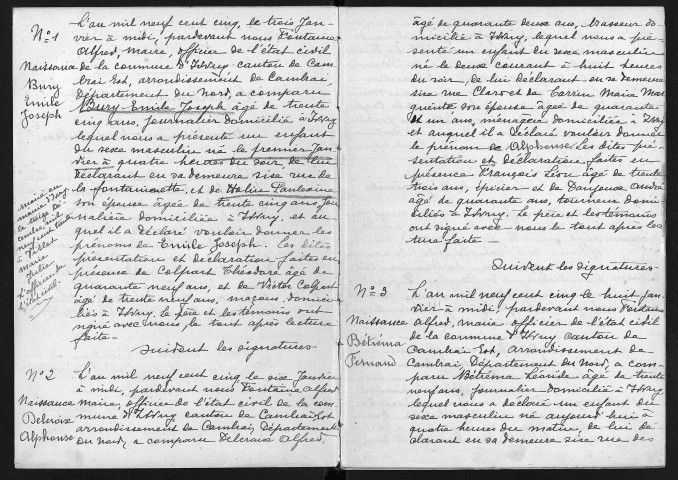 N°1
Naissance
Bury
Emile
Joseph
L'an mil neuf cent cinq, le trois Jan-
vier à midi, pardevant nous Fontaine
Alfred, Maire, officier de l'état civil
de la commune d'Iwuy canton de Cam-
brai Est, arrondissement de Cambrai,
Département du Nord, a comparu
Bury Emile Joseph âgé de trente
cinq ans, journalier domicilié à Iwuy
lequel nous a présenté un enfant
du sexe masculin né le premier Jan-
vier à quatre heures du soir de lui
déclarant en sa demeure sise rue de
la fontainette, et de Halin Pauline
son épouse âgée de trente cinq ans jour-
nalière domiciliée à Iwuy, et au
quel il a déclaré vouloir donner les
prénoms de Emile Joseph. Les dites
présentation et déclaration faites en
présence de Colpart Théodore âgé de
quarante neuf ans, et de Victor Colpart
âgé de trente neuf ans, maçons, domici-
liés à Iwuy, le père et les témoins ont
signé avec nous, le tout après lecture
faite.
Suivent les signatures
Marié en
mairie d'Iwuy
le treize
neuf cent trente
à
Marie
Julia
L'officier de
l'état civil
N°2
Naissance
Delcroix
Alphonse
L'an mil neuf cent cinq le six Janvier
à midi, pardevant nous Fontaine Alfred
Maire, officier de l'état civil de la com-
mune d'Iwuy canton de Cambrai Est
arrondissement de Cambrai, Département
du Nord, a comparu Delcroix Alfred,
âgé de quarante deux ans, brasseur do-
micilié à Iwuy, lequel nous a pré-
senté un enfant du sexe masculin
né le deux courant à huit heures
du soir, de lui déclarant en sa demeure
sise rue Clervet de Carrin Maria Mar-
guerite son épouse âgée de quarante
et un ans, ménagère domiciliée à Iwuy
et auquel il a déclaré vouloir donner
le prénom de Alphonse. Les dites pré-
sentation et déclaration faites en
présence François Léon âgé de trente
trois ans, épicier et de Danjoux André
âgé de quarante ans, tourneur domi-
ciliés à Iwuy. Le père et les témoins
ont signé avec nous le tout après lec-
ture faite
Suivent les signatures
N°3
Naissance
Bétréma
Fernand
L'an mil neuf cent cinq le huit Jan-
vier à midi, pardevant nous Fontaine
Alfred, maire officier de l'état civil
de la commune d'Iwuy canton de
Cambrai Est, arrondissement de
Cambrai, Département du Nord, a com-
paru Bétréma Léonide âgé de trente
neuf ans, journalier domicilié à Iwuy
lequel nous a déclaré un enfant du
sexe masculin né aujourd'hui à
quatre heures du matin, de lui dé-
clarant en sa demeure sise rue des